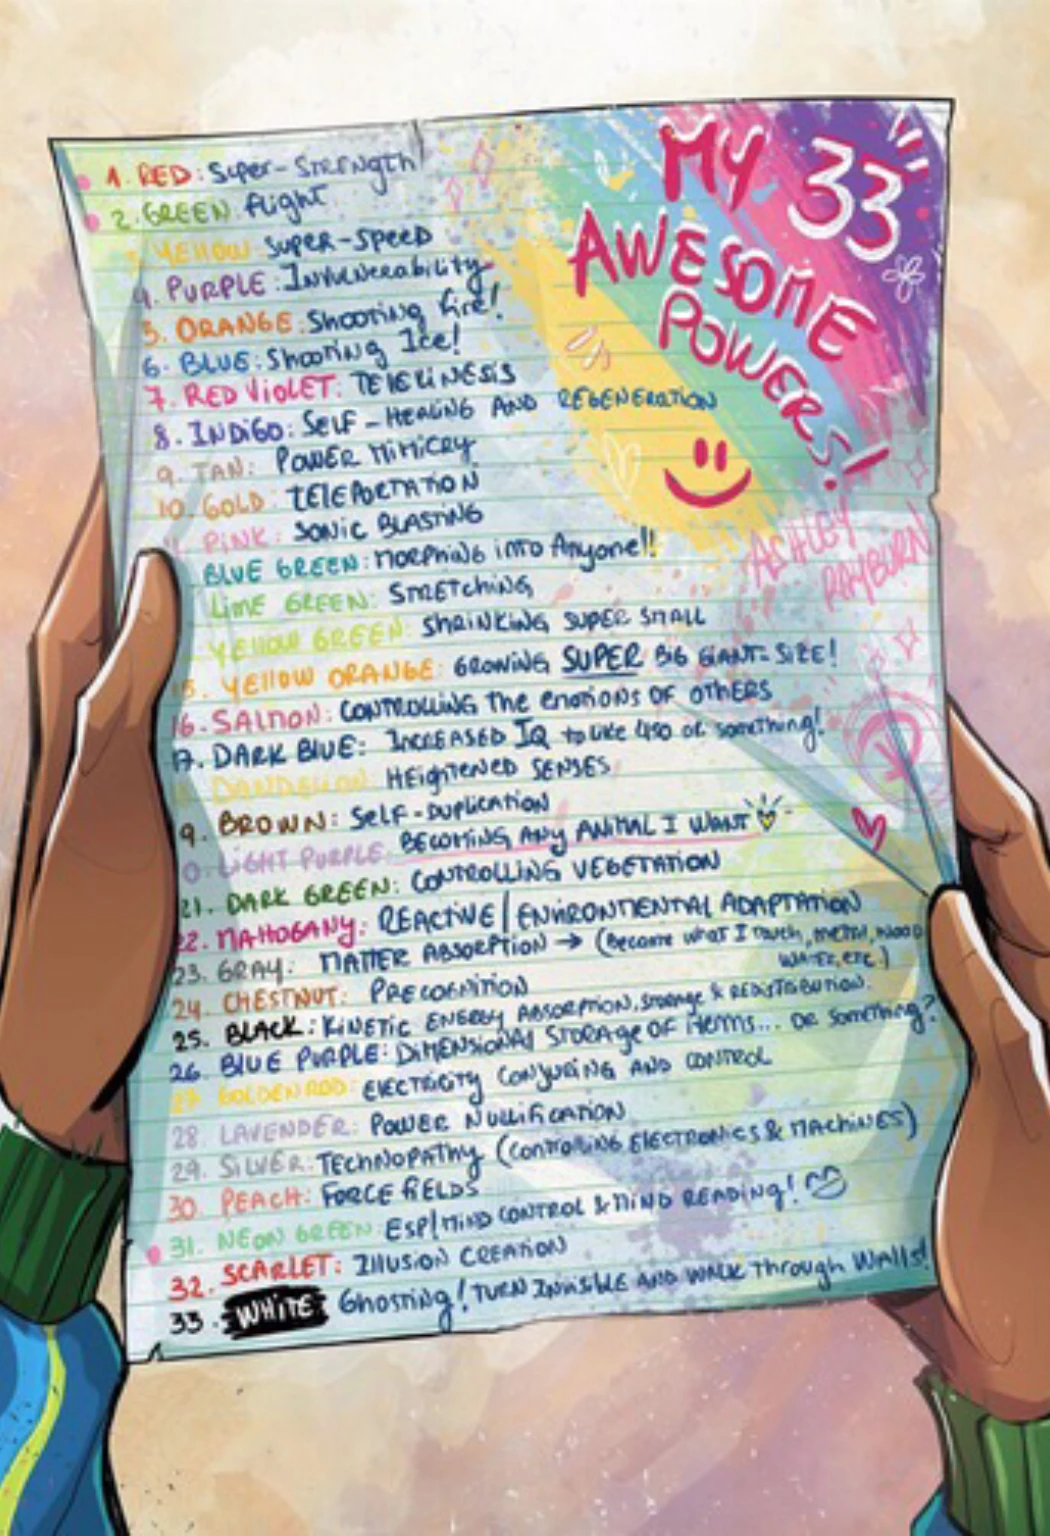 MY 33
AWESOME
POWERS!
ASHLEY
RAYBURN
1. RED: Super-Strength
2. GREEN: Flight
3. YELLOW: Super-Speed
4. PURPLE: Invulnerability
5. ORANGE: Shooting Fire!
6. BLUE: Shooting Ice!
7. RED VIOLET: TELEKINESIS
8. INDIGO: SELF-HEALING AND REGENERATION
9. TAN: POWER MIMICRY
10. GOLD: TELEPORTATION
PINK: SONIC BLASTING
BLUE GREEN: MORPHING INTO Anyone!!
LIME GREEN: STRETCHING
YELLOW GREEN: SHRINKING SUPER SMALL
15. YELLOW ORANGE: GROWING SUPER BIG GIANT-SIZE!
16. SALMON: CONTROLLING THE EMOTIONS OF OTHERS
17. DARK BLUE: INCREASED IQ to like 450 or something!
DANDELION: HEIGHTENED SENSES
9. BROWN: SELF-DUPLICATION
0. LIGHT PURPLE: BECOMING ANY ANIMAL I WANT
21. DARK GREEN: CONTROLLING VEGETATION
22. MAHOGANY: REACTIVE/ENVIRONMENTAL ADAPTATION
23. GRAY: MATTER ABSORPTION → (Become what I touch, METAL, WOOD
WATER, ETC.)
24. CHESTNUT: PRECOGNITION
25. BLACK: KINETIC ENERGY ABSORPTION, STORAGE & REDISTRIBUTION.
26. BLUE PURPLE: DIMENSIONAL STORAGE OF ITEMS... OR SOMETHING?
27. GOLDENROD: ELECTRICITY CONJURING AND CONTROL
28. LAVENDER: POWER NULLIFICATION
29. SILVER: TECHNOPATHY (CONTROLLING ELECTRONICS & MACHINES)
30. PEACH: FORCE FIELDS
31. NEON GREEN: ESP/MIND CONTROL & MIND READING!
32. SCARLET: ILLUSION CREATION
33. WHITE Ghosting! TURN INVISIBLE AND WALK Through Walls!